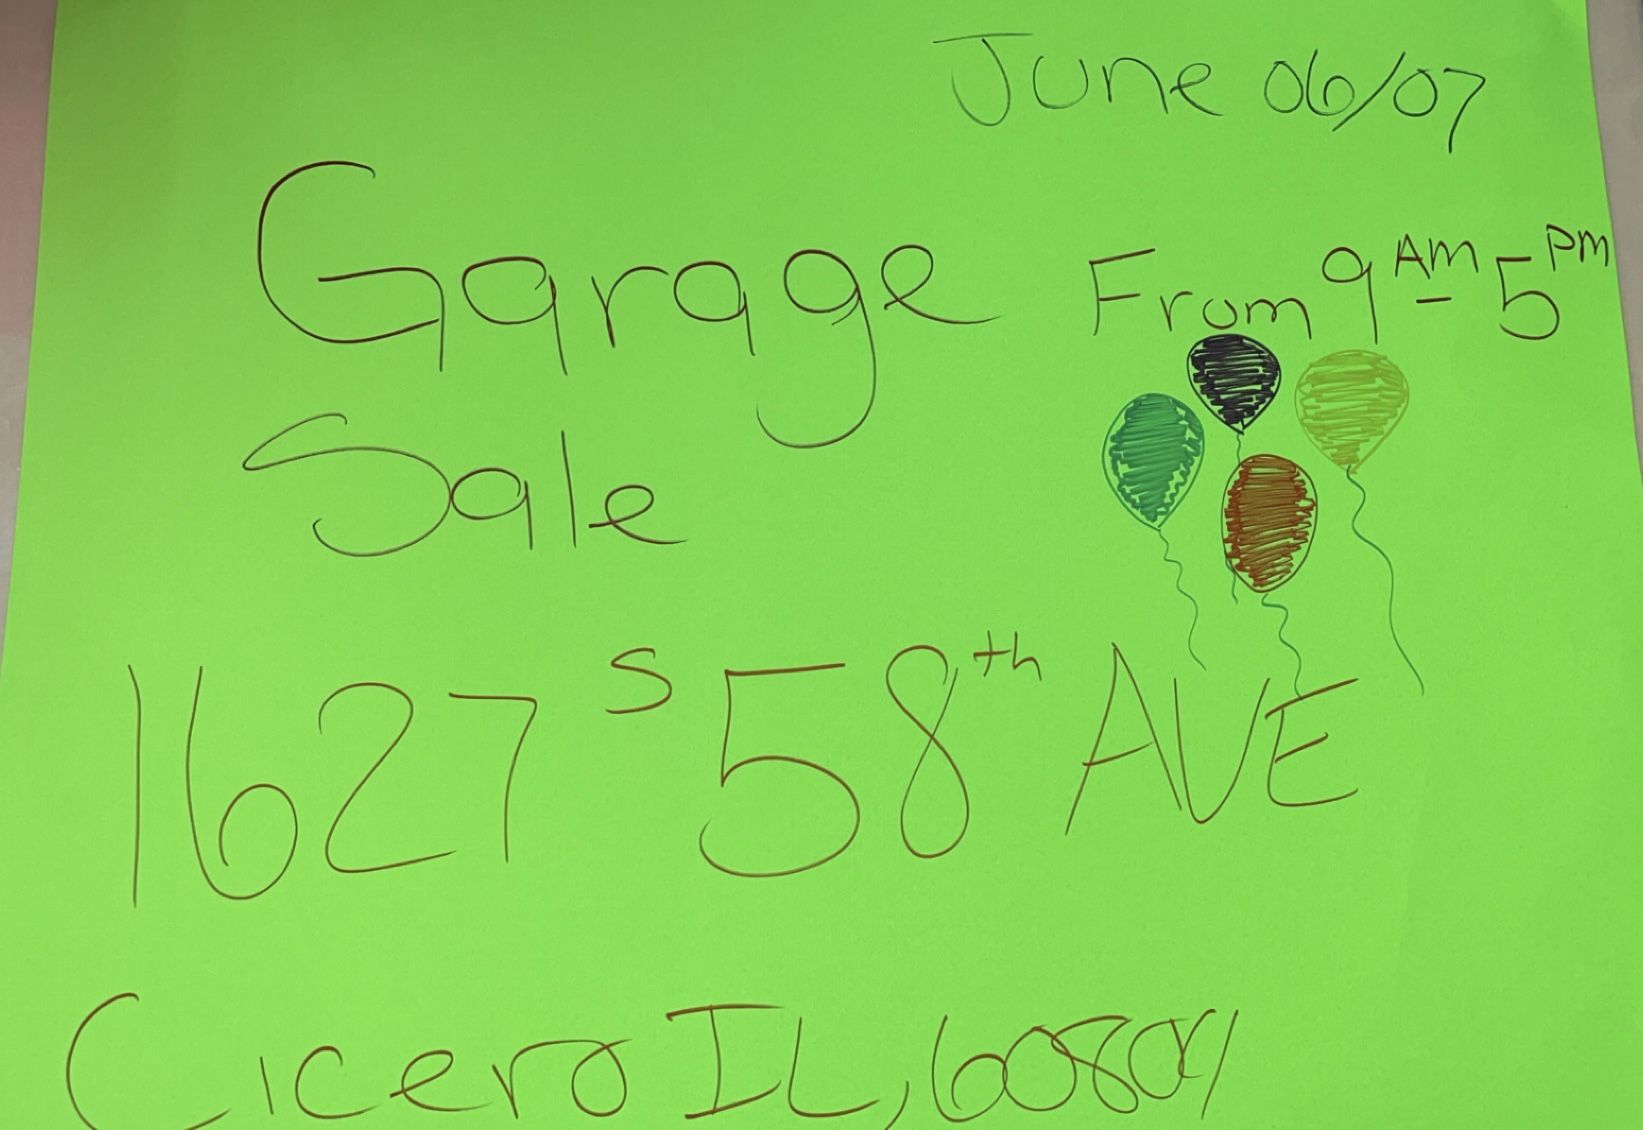 June 06/07
Garage
Sale
From 9 AM - 5 PM
1627 S 58th AVE
Cicero IL, 60804